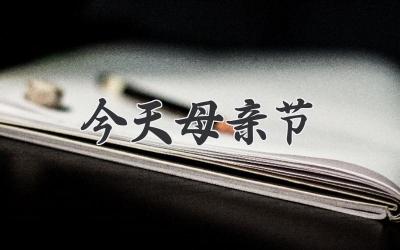 今天母亲节